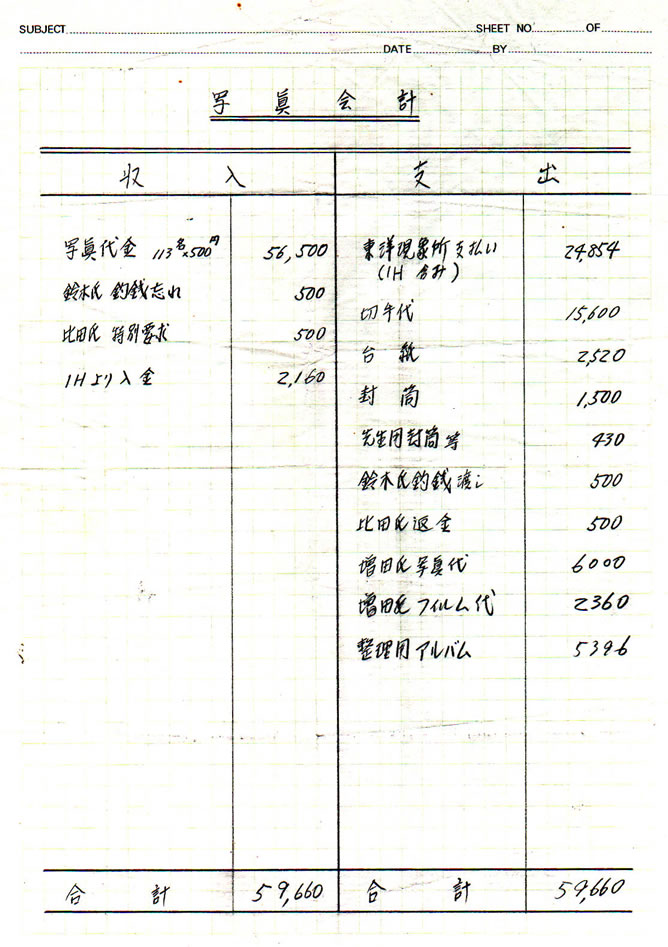 SUBJECT SHEET NO. OF
DATE BY
写真会計
収入 支出
写真代金 113名×500円 56,500
鈴木氏 釣銭忘れ 500
比田氏 特別要求 500
1Hより入金 2,160
東洋現象所支払い 24,854
(1H含み)
切手代 15,600
台紙 2,520
封筒 1,500
先生用封筒等 430
鈴木氏釣銭渡し 500
比田氏返金 500
増田氏写真代 6000
増田氏フィルム代 2360
整理用アルバム 5396
合計 59,660 合計 59,660